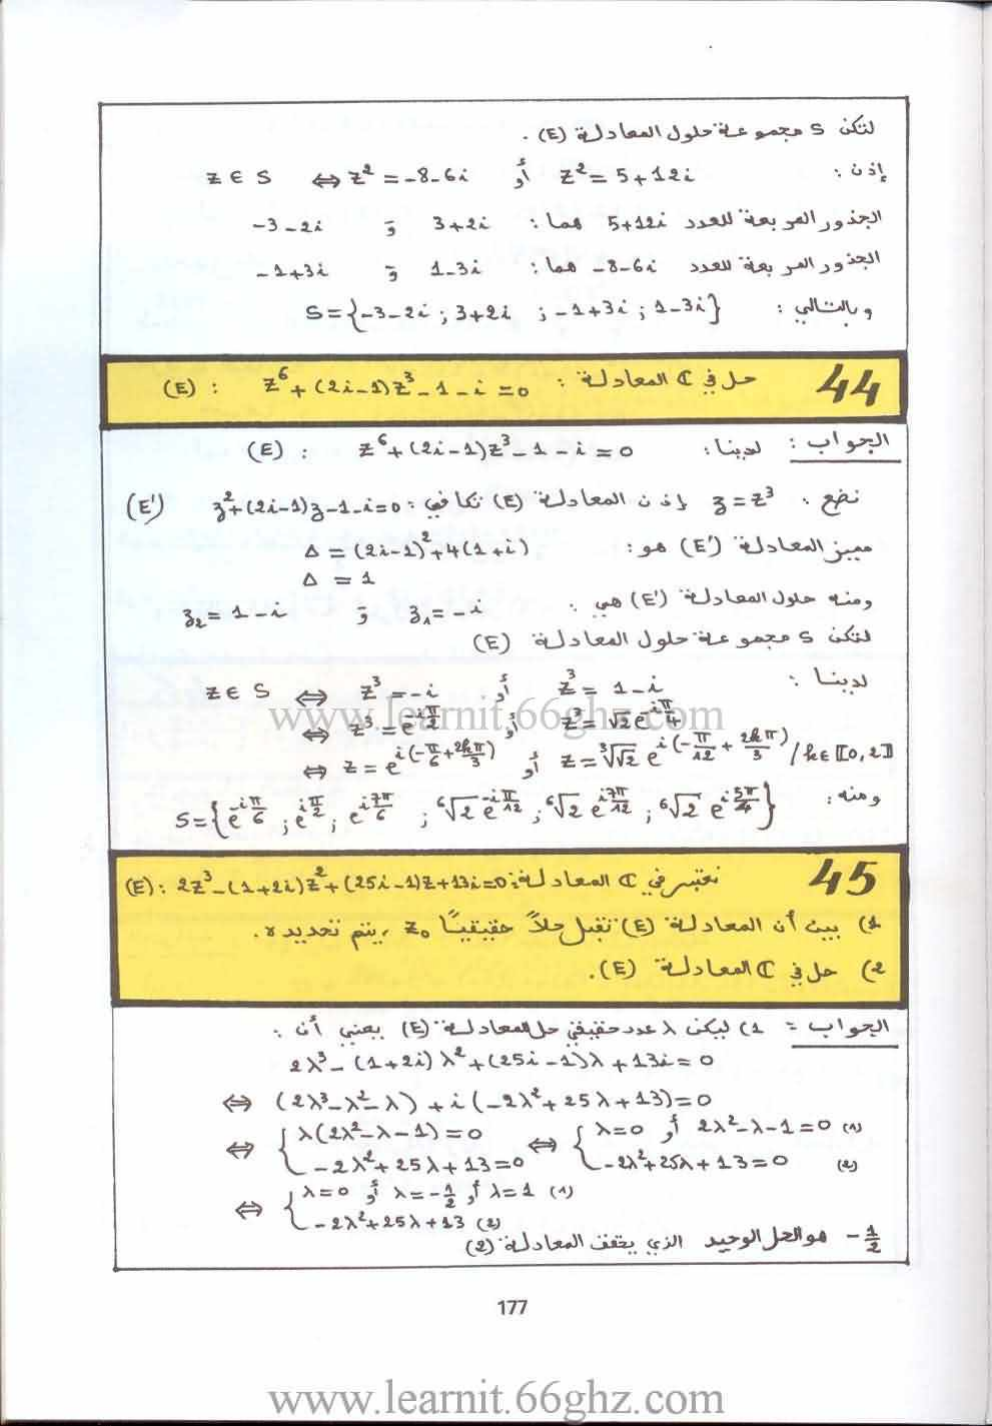 لتكن S مجموعة حلول المعادلة (E) .
إذن : z ∈ S ⇔ z² = -8-6i أو z² = 5+12i
الجذور المربعة للعدد 5+12i هما : 3+2i و -3-2i
الجذور المربعة للعدد -8-6i هما : 1-3i و -1+3i
وبالتالي : S = {-3-2i ; 3+2i ; -1+3i ; 1-3i}
44 حل في ℂ المعادلة : (E) : z⁶ + (2i-1)z³ - 1 - i = 0
الجواب : لدينا : (E) : z⁶ + (2i-1)z³ - 1 - i = 0
نضع : ʒ = z³ إذن المعادلة (E) تكافئ : ʒ² + (2i-1)ʒ - 1 - i = 0 (E')
مميز المعادلة (E') هو : Δ = (2i-1)² + 4(1+i)
Δ = 1
ومنه حلول المعادلة (E') هي : ʒ₁ = -i و ʒ₂ = 1-i
لتكن S مجموعة حلول المعادلة (E)
لدينا : z ∈ S ⇔ z³ = -i أو z³ = 1-i
⇔ z³ = e^{-iπ/2} أو z³ = √2 e^{-iπ/4}
www.learnit.66ghz.com
⇔ z = e^{i(-π/6 + 2kπ/3)} أو z = ∛√2 e^{i(-π/12 + 2kπ/3)} / k ∈ ⟦0,2⟧
ومنه : S = {e^{-iπ/6} ; e^{iπ/2} ; e^{i7π/6} ; ⁶√2 e^{-iπ/12} ; ⁶√2 e^{i7π/12} ; ⁶√2 e^{i5π/4}}
45 نعتبر في ℂ المعادلة : (E) : 2z³ - (1+2i)z² + (25i-1)z + 13i = 0
1) بين أن المعادلة (E) تقبل حلاً حقيقيًا z₀ ، يتم تحديده .
2) حل في ℂ المعادلة (E) .
الجواب = 1) ليكن λ عدد حقيقي حل للمعادلة (E) يعني أن :
2λ³ - (1+2i)λ² + (25i-1)λ + 13i = 0
⇔ (2λ³ - λ² - λ) + i(-2λ² + 25λ + 13) = 0
⇔ { λ(2λ² - λ - 1) = 0 ⇔ { λ = 0 أو 2λ² - λ - 1 = 0 (1)
-2λ² + 25λ + 13 = 0 -2λ² + 25λ + 13 = 0 (2)
⇔ { λ = 0 أو λ = -1/2 أو λ = 1 (1)
-2λ² + 25λ + 13 (2)
-1/2 هو الحل الوحيد الذي يحقق المعادلة (2)
177
www.learnit.66ghz.com